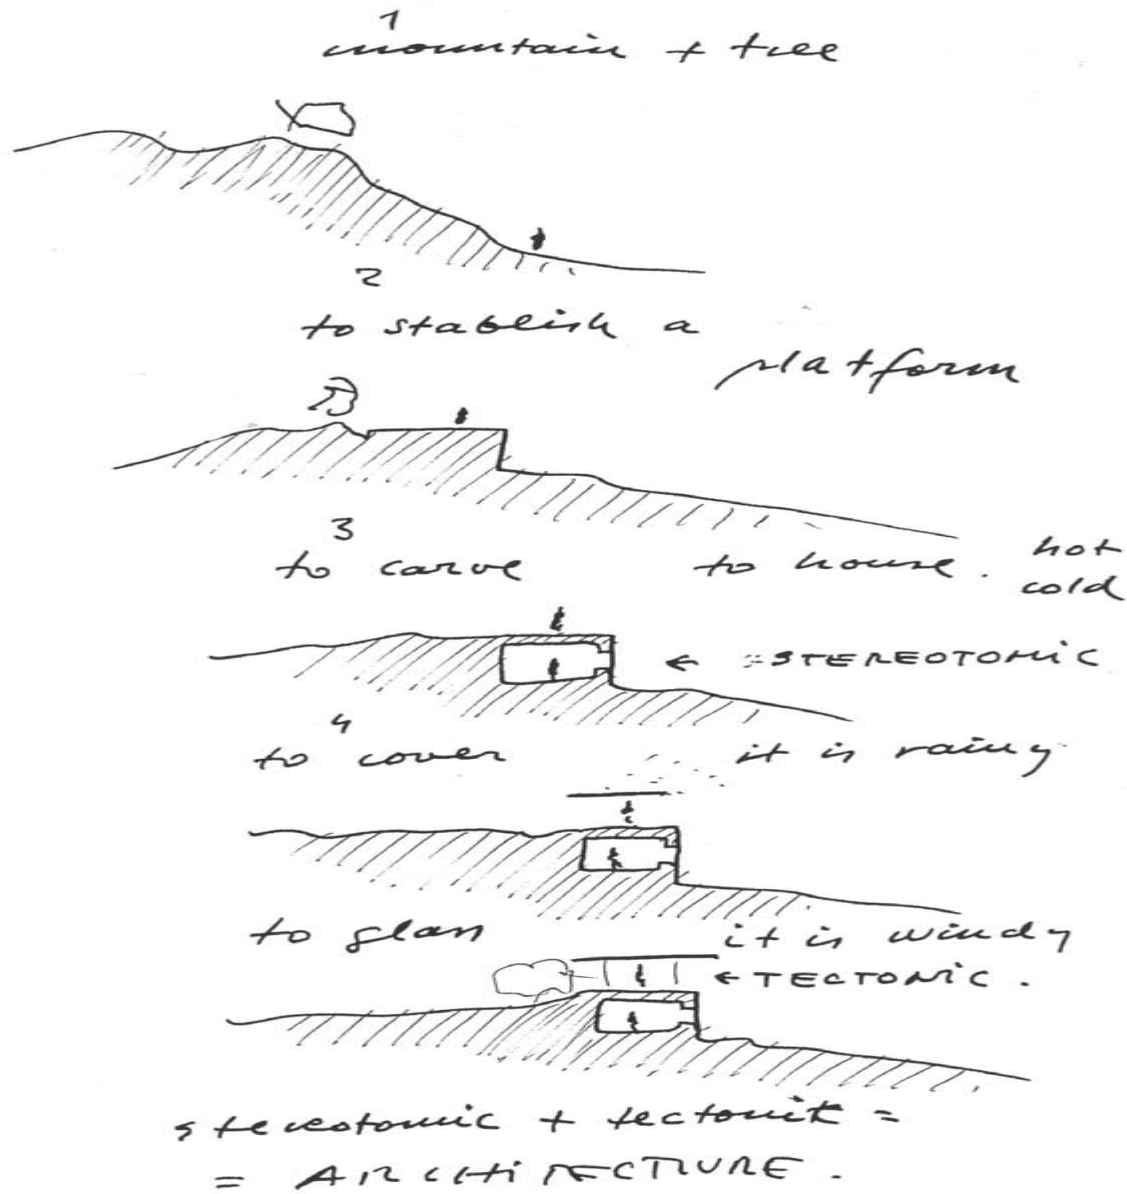 1
mountain + tree
2
to stablish a
platform
3
to carve to house. hot
cold
← STEREOTOMIC
4
to cover it is rainy
to glass it is windy
← TECTONIC.
stereotomic + tectonik =
= ARCHITECTURE.